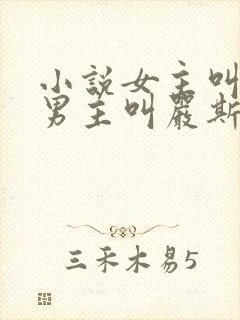 小説女主叫
男主叫嚴斯
三禾木易5